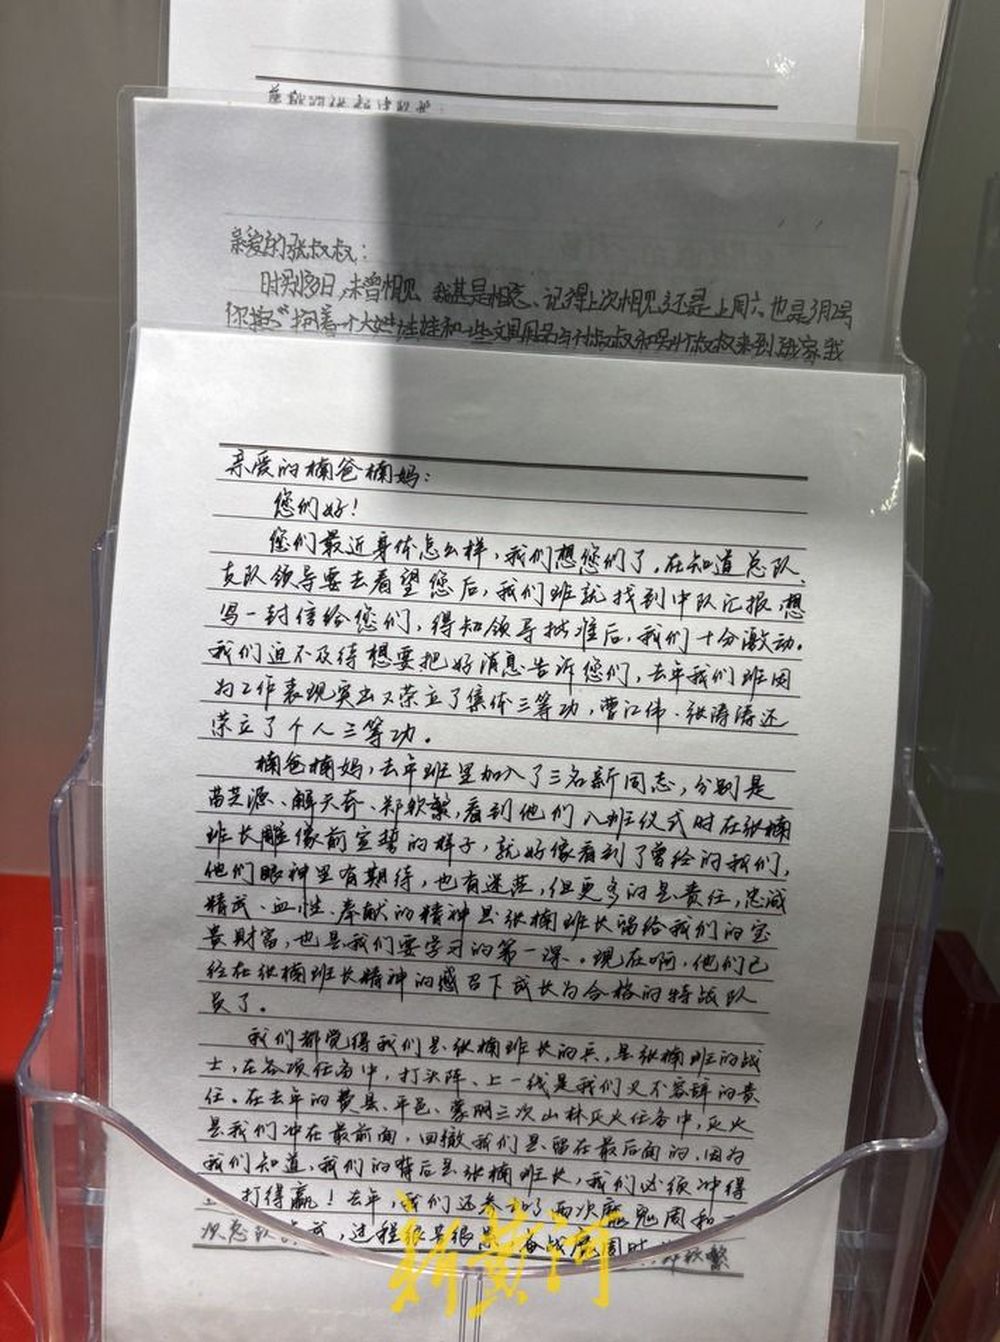 亲爱的张叔叔：
时别多日，未曾相见，我甚是想念、记得上次相见还是上周六也是3月2号
你抱着一个大娃娃和一些文具用品与叔叔和叔叔来到我家我
亲爱的楠爸楠妈：
您们好！
您们最近身体怎么样，我们想您们了。在知道总队、
支队领导要去看望您后，我们班就找到中队汇报，想
写一封信给您们，得知领导批准后，我们十分激动。
我们迫不及待想要把好消息告诉您们，去年我们班因
为工作表现突出又荣立了集体三等功，曹江伟、张涛涛还
荣立了个人三等功。
楠爸楠妈，去年班里加入了三名新同志，分别是
苗芝源、解天奇、郑软繁，看到他们入班仪式时在张楠
班长雕像前宣誓的样子，就好像看到了曾经的我们，
他们眼神里有期待，也有迷茫，但更多的是责任，忠诚
精武、血性、奉献的精神是张楠班长留给我们的宝
贵财富，也是我们要学习的第一课。现在啊，他们已
经在张楠班长精神的感召下成长为合格的特战队
员了。
我们都觉得我们是张楠班长的兵，是张楠班的战
士，在各项任务中，打头阵、上一线是我们义不容辞的责
任。在去年的费县、平邑、蒙阴三次山林灭火任务中，灭火
是我们冲在最前面，回撤我们是留在最后面的，因为
我们知道，我们的背后是张楠班长，我们必须冲得
打得赢！去年，我们还参加了两次魔鬼周和一
次总队，过程很苦很累，备战魔鬼周时
新黄河